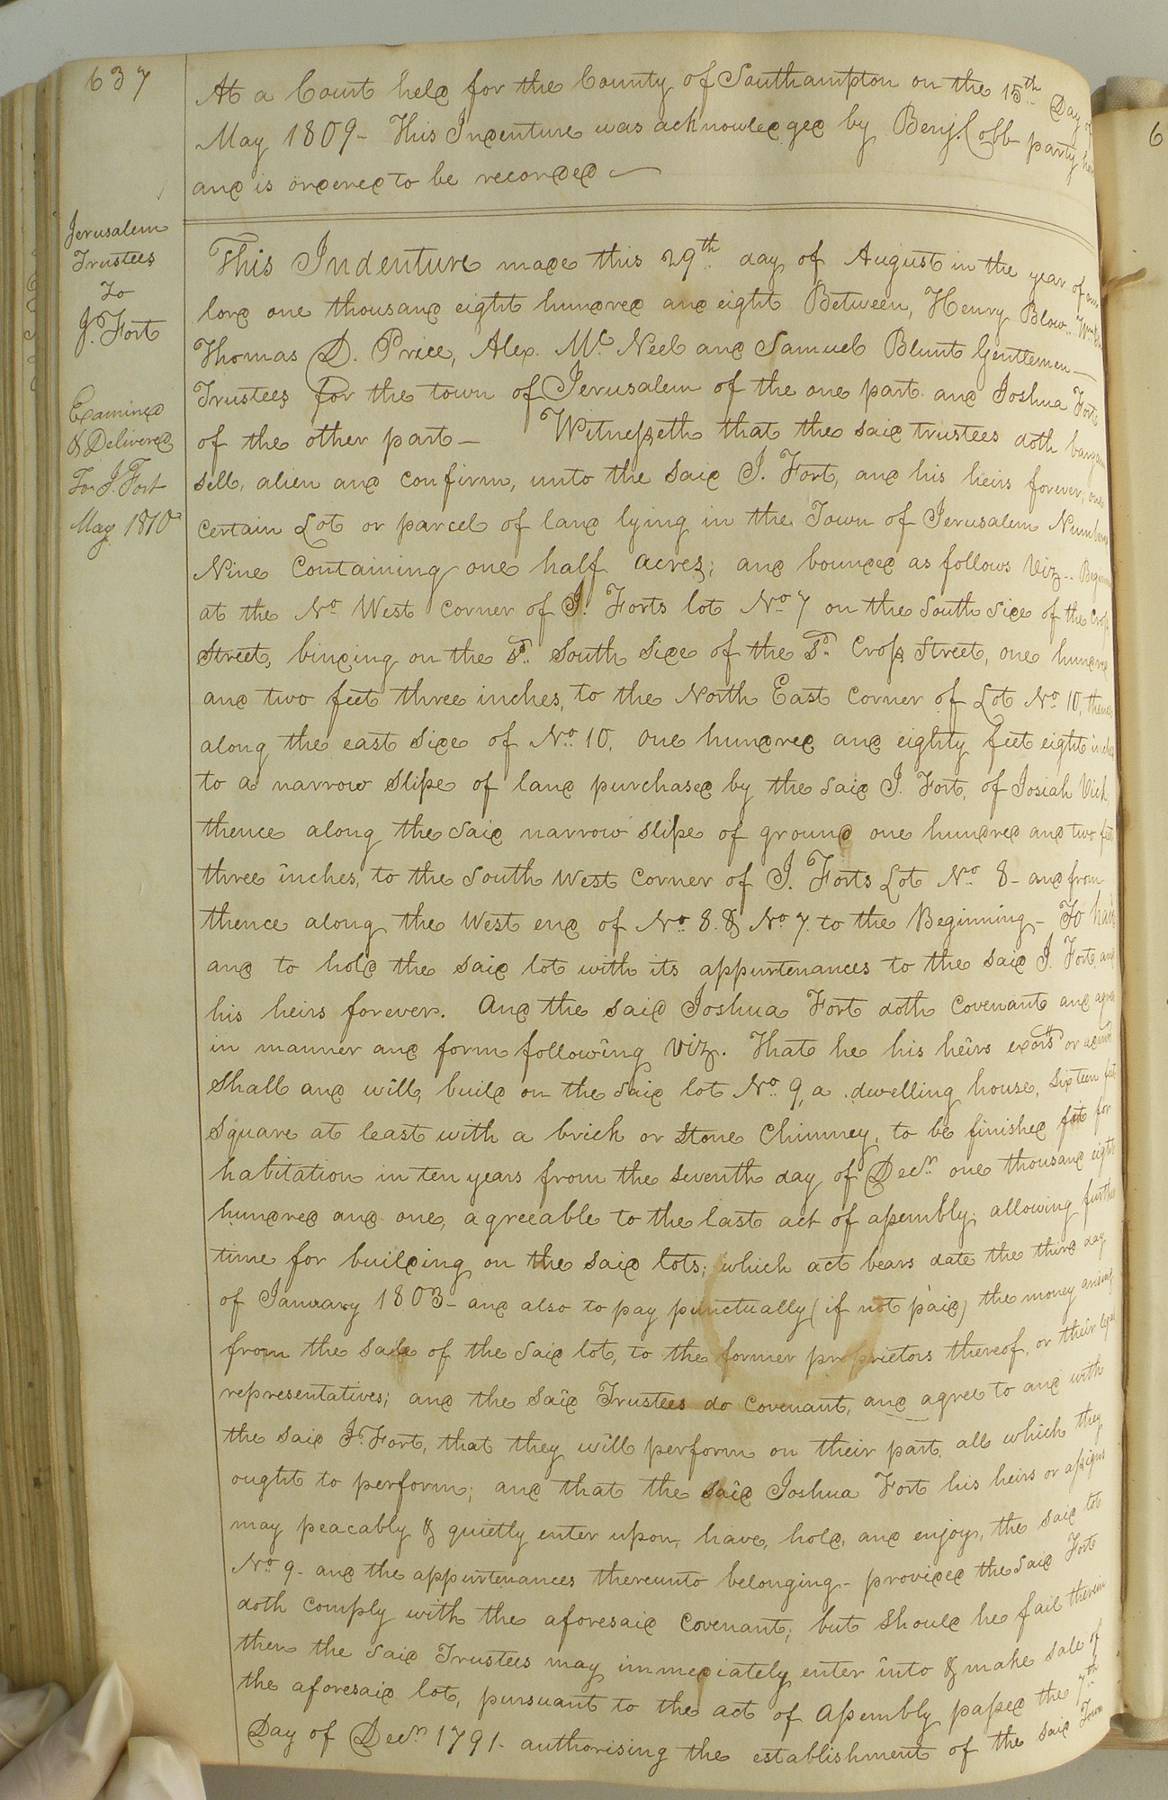 637
At a Court held for the County of Southampton on the 15th Day of
May 1809- This Indenture was acknowledged by Benj. Cobb party
and is ordered to be recorded
Jerusalem
Trustees
To
J. Fort
Examined
& Delivered
To J. Fort
May 1810
This Indenture made this 29th day of August in the year of our
lord one thousand eight hundred and eight Between, Henry Blow..
Thomas D. Price, Alex. Mc Neel and Samuel Blunt Gentlemen-
Trustees for the town of Jerusalem of the one part and Joshua Fort
of the other part- Witnesseth that the said trustees doth bargain
sell, alien and confirm, unto the said J. Fort, and his heirs forever, one
certain Lot or parcel of land lying in the Town of Jerusalem Number
Nine Containing one half acres; and bounded as follows Viz--
at the No. West corner of J. Forts lot No. 7 on the South side of the Cross
Street, binding on the sd. South side of the sd. Cross Street, one hundred
and two feet three inches, to the North East corner of Lot No. 10, thence
along the east side of No. 10, one hundred and eighty feet eight inches
to a narrow slipe of land purchased by the said J. Fort, of Josiah Vick
thence along the said narrow slipe of ground one hundred and two feet
three inches, to the South West corner of J. Forts Lot No. 8- and from
thence along the West end of No. 8. & No. 7. to the Beginning- To have
and to hold the said lot with its appurtenances to the said J. Fort, and
his heirs forever. And the said Joshua Fort doth covenant and agree
in manner and form following Viz. That he his heirs exors or
Shall and will, build on the said lot No. 9, a dwelling house, Sixteen feet
Square at least with a brick or Stone Chimney, to be finished fit for
habitation in ten years from the seventh day of Decr. one thousand eight
hundred and one, agreeable to the last act of assembly; allowing further
time for building on the said lots; which act bears date the third day
of January 1803- and also to pay punctually (if not paid) the money arising
from the sale of the said lot, to the former proprietors thereof, or their legal
representatives; and the said Trustees do Covenant, and agree to and with
the said J. Fort, that they will perform on their part all which they
ought to perform; and that the said Joshua Fort his heirs or assigns
may peacably & quietly enter upon, have, hold, and enjoy, the said lot
No. 9- and the appurtenances thereunto belonging- provided the said Fort
doth comply with the aforesaid Covenant; but should he fail therein
then the said Trustees may immediately enter into & make sale of
the aforesaid lot, pursuant to the act of Assembly passed the 7th
Day of Decr. 1791- authorising the establishment of the said Town